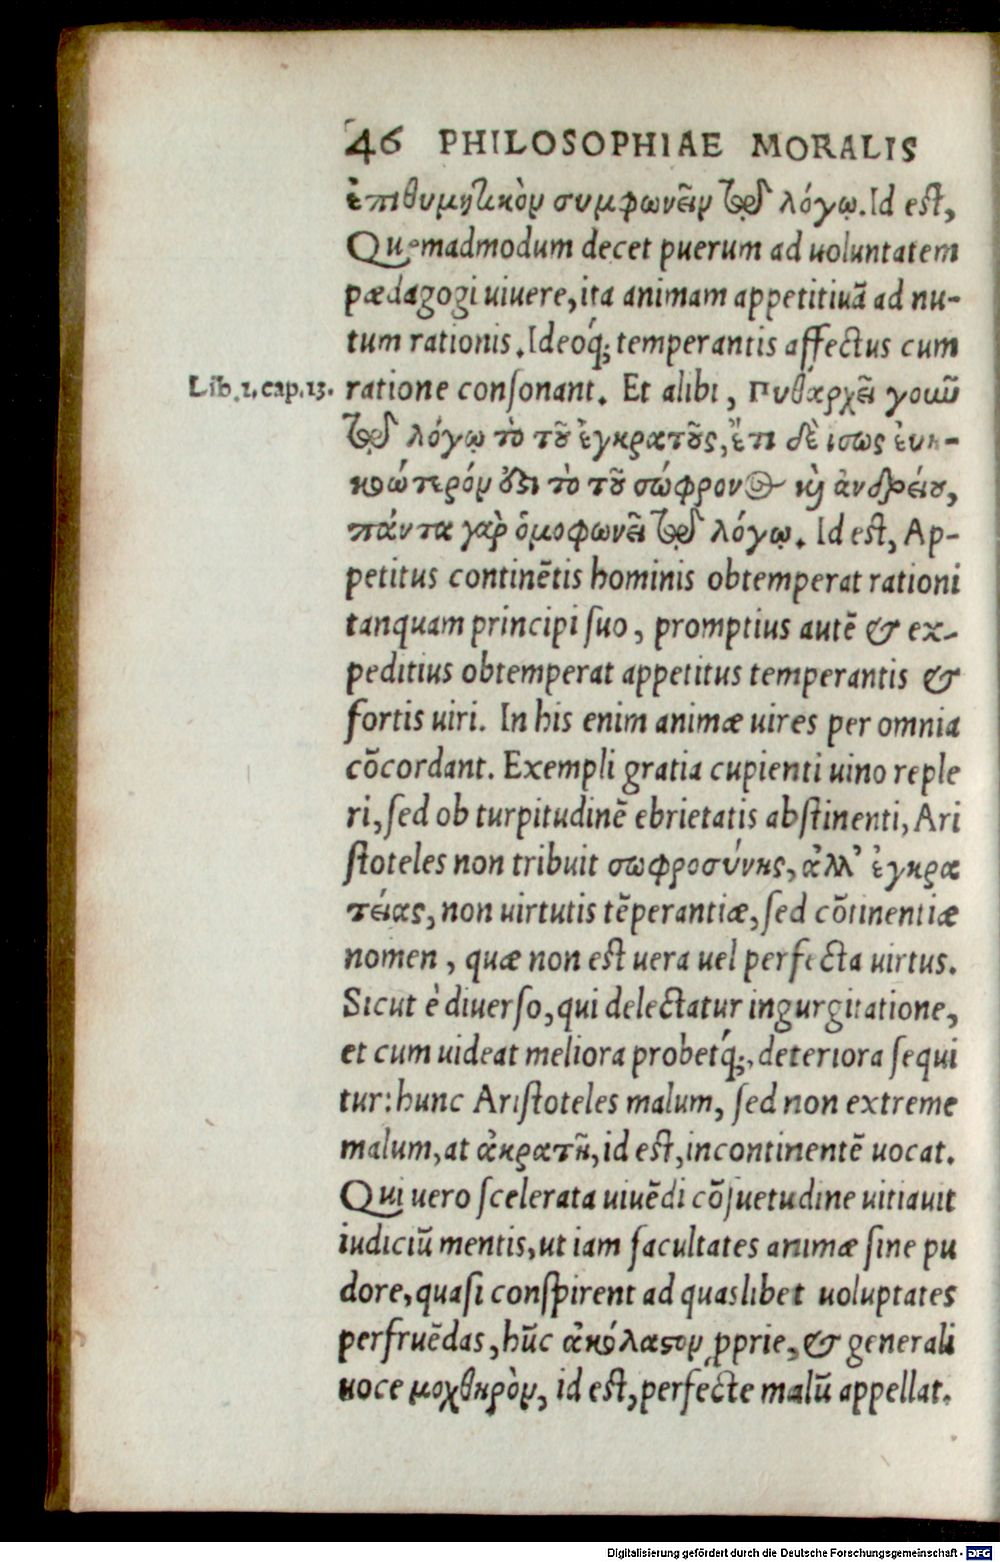 46 PHILOSOPHIAE MORALIS
ἐπιθυμητικὸν συμφωνεῖν τῷ λόγῳ. Id est,
Quemadmodum decet puerum ad uoluntatem
pædagogi uiuere, ita animam appetitiuā ad nu-
tum rationis. Ideoq́; temperantis affectus cum
Lib. 1. cap. 13.
ratione conſonant. Et alibi, Πυθαρχεῖ γοιῶ
τῷ λόγῳ τὸ τοῦ ἐγκρατοῦς, ἔτι δὲ ισως ἐυη-
κοώτερόν ὅζι τὸ τοῦ σώφρονος καὶ ἀνδρείου,
πάντα γὰρ ὁμοφωνεῖ τῷ λόγῳ. Id est, Ap-
petitus continētis hominis obtemperat rationi
tanquam principi ſuo, promptius autē & ex-
peditius obtemperat appetitus temperantis &
fortis uiri. In his enim animæ uires per omnia
cōcordant. Exempli gratia cupienti uino reple
ri, ſed ob turpitudinē ebrietatis abſtinenti, Ari
ſtoteles non tribuit σωφροσύνης, ἀλλ' ἐγκρα
τείας, non uirtutis tēperantiæ, ſed cōtinentiæ
nomen, quæ non est uera uel perfecta uirtus.
Sicut è diuerſo, qui delectatur ingurgitatione,
et cum uideat meliora probetq́;, deteriora ſequi
tur: hunc Ariſtoteles malum, ſed non extreme
malum, at ἀκρατῆ, id est, incontinentē uocat.
Qui uero ſcelerata uiuēdi cōſuetudine uitiauit
iudiciū mentis, ut iam facultates animæ ſine pu
dore, quaſi conſpirent ad quaslibet uoluptates
perfruēdas, hūc ἀκόλαϛον ꝓprie, & generali
uoce μοχθηρὸν, id est, perfecte malū appellat.
Digitalisierung gefördert durch die Deutsche Forschungsgemeinschaft - DFG